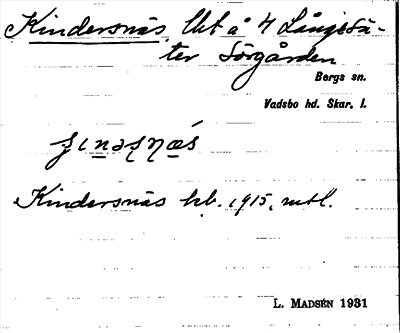 Kindersnäs, lht å 4 Långesä-
ter Sörgården
Bergs sn.
Vadsbo hd. Skar. l.
Kindersnäs kb. 1915, mtl.
L. MADSÉN 1931